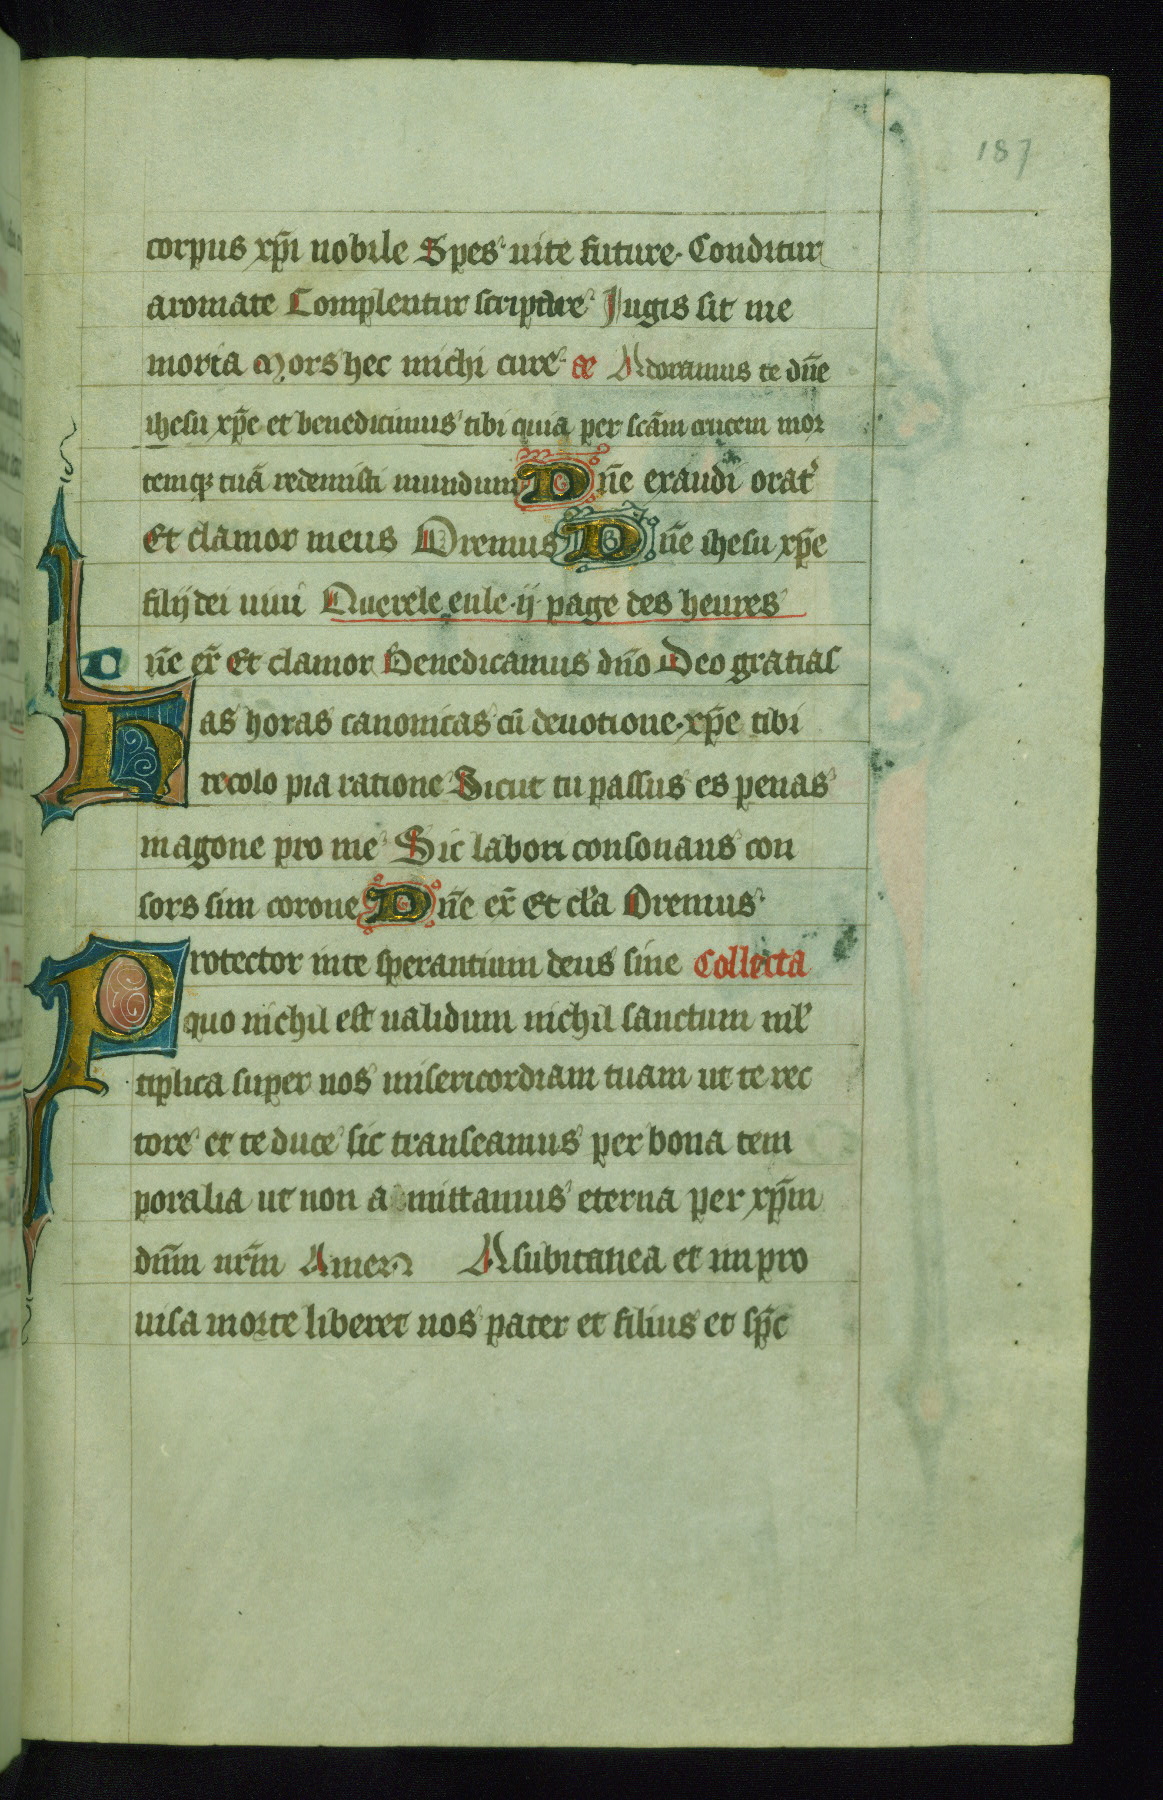 187
corpus xp̄i nobile Spes uite future. Conditur
aromate Complentur scripture Jugis sit me
moria Mors hec michi cure ae Adoramus te dn̄e
ihesu xp̄e et benedicimus tibi quia per scā̄m crucem mor
temqꝫ tuā redemisti mundum Dn̄e exaudi orat᷒
Et clamor meus Oremus Dn̄e ihesu xp̄e
filij dei uiui Querele eule .ij. page des heures
Dn̄e er̄ Et clamor Benedicamus dn̄o Deo gratias
Has horas canonicas cū deuotione. xp̄e tibi
recolo pia ratione Sicut tu passus es penas
in agone pro me Sic labori consonans con
sors sim corone Dn̄e er̄ Et cla Oremus
Protector in te sperantium deus sine Collecta
quo nichil est ualidum nichil sanctum ml᷒
tiplica super nos misericordiam tuam ut te rec
tore et te duce sic transeamus per bona tem
poralia ut non a mittamus eterna per xp̄m
dn̄m nr̄m Amen A subitanea et inpro
uisa morte liberet nos pater et filius et sp̄c